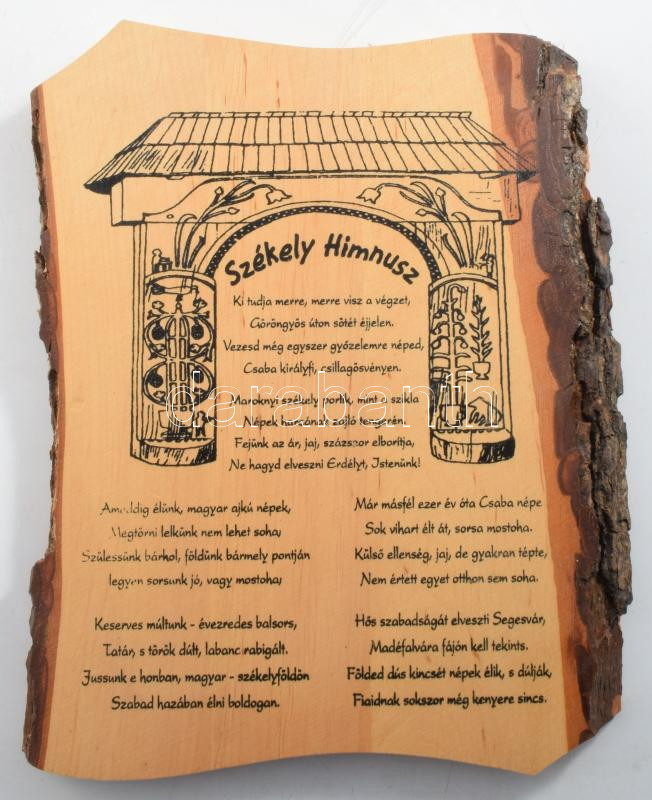 Székely Himnusz
Ki tudja merre, merre visz a végzet,
Göröngyös úton sötét éjjelen.
Vezesd még egyszer győzelemre néped,
Csaba királyfi, csillagösvényen.
Maroknyi székely porlik, mint a szikla
Népek harcának zajló tengerén.
Fejünk az ár, jaj, százszor elborítja,
Ne hagyd elveszni Erdélyt, Istenünk!
Ameddig élünk, magyar ajkú népek,
Megtörni lelkünk nem lehet soha;
Szülessünk bárhol, földünk bármely pontján
legyen sorsunk jó, vagy mostoha;
Keserves múltunk - évezredes balsors,
Tatár, s török dúlt, labanc rabigált.
Jussunk e honban, magyar - székelyföldön
Szabad hazában élni boldogan.
Már másfél ezer év óta Csaba népe
Sok vihart élt át, sorsa mostoha.
Külső ellenség, jaj, de gyakran tépte,
Nem értett egyet otthon sem soha.
Hős szabadságát elveszti Segesvár,
Madéfalvára fájón kell tekints.
Földed dús kincsét népek élik, s dúlják,
Fiaidnak sokszor még kenyere sincs.
darabanth